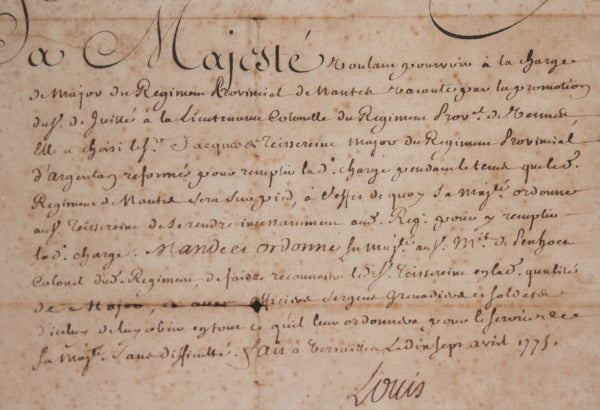 Sa Majesté voulant pourvoir à la charge
de Major du Regiment Provincial de Nantes vacante par la promotion
du S. de Juillé à la Lieutenance Colonelle du Regiment Prov.al de Vannes,
Elle a choisi le S. Jacques de Teissereine Major du Regiment Provincial
d'argentan reformé, pour remplir la d. charge pendant le tems que le d.
Regiment de Nantes sera sur pied, à l'effet de quoy Sa Maj.té ordonne
au S. Teissereine de se rendre incessamment au d. Reg. pour y remplir
la d. charge. Mande et ordonne Sa Maj.té au S. M.is de Penhoet
Colonel du d. Regiment, de faire reconnoitre le d. S. Teissereine en la d. qualité
de Major, et aux officiers Sergens Grenadiers et soldats
d'icelui de luy obéir en tout ce qu'il leur ordonnera pour le service de
Sa Maj.té sans difficulté. Fait à Versailles Le dix sept avril 1775.
Louis